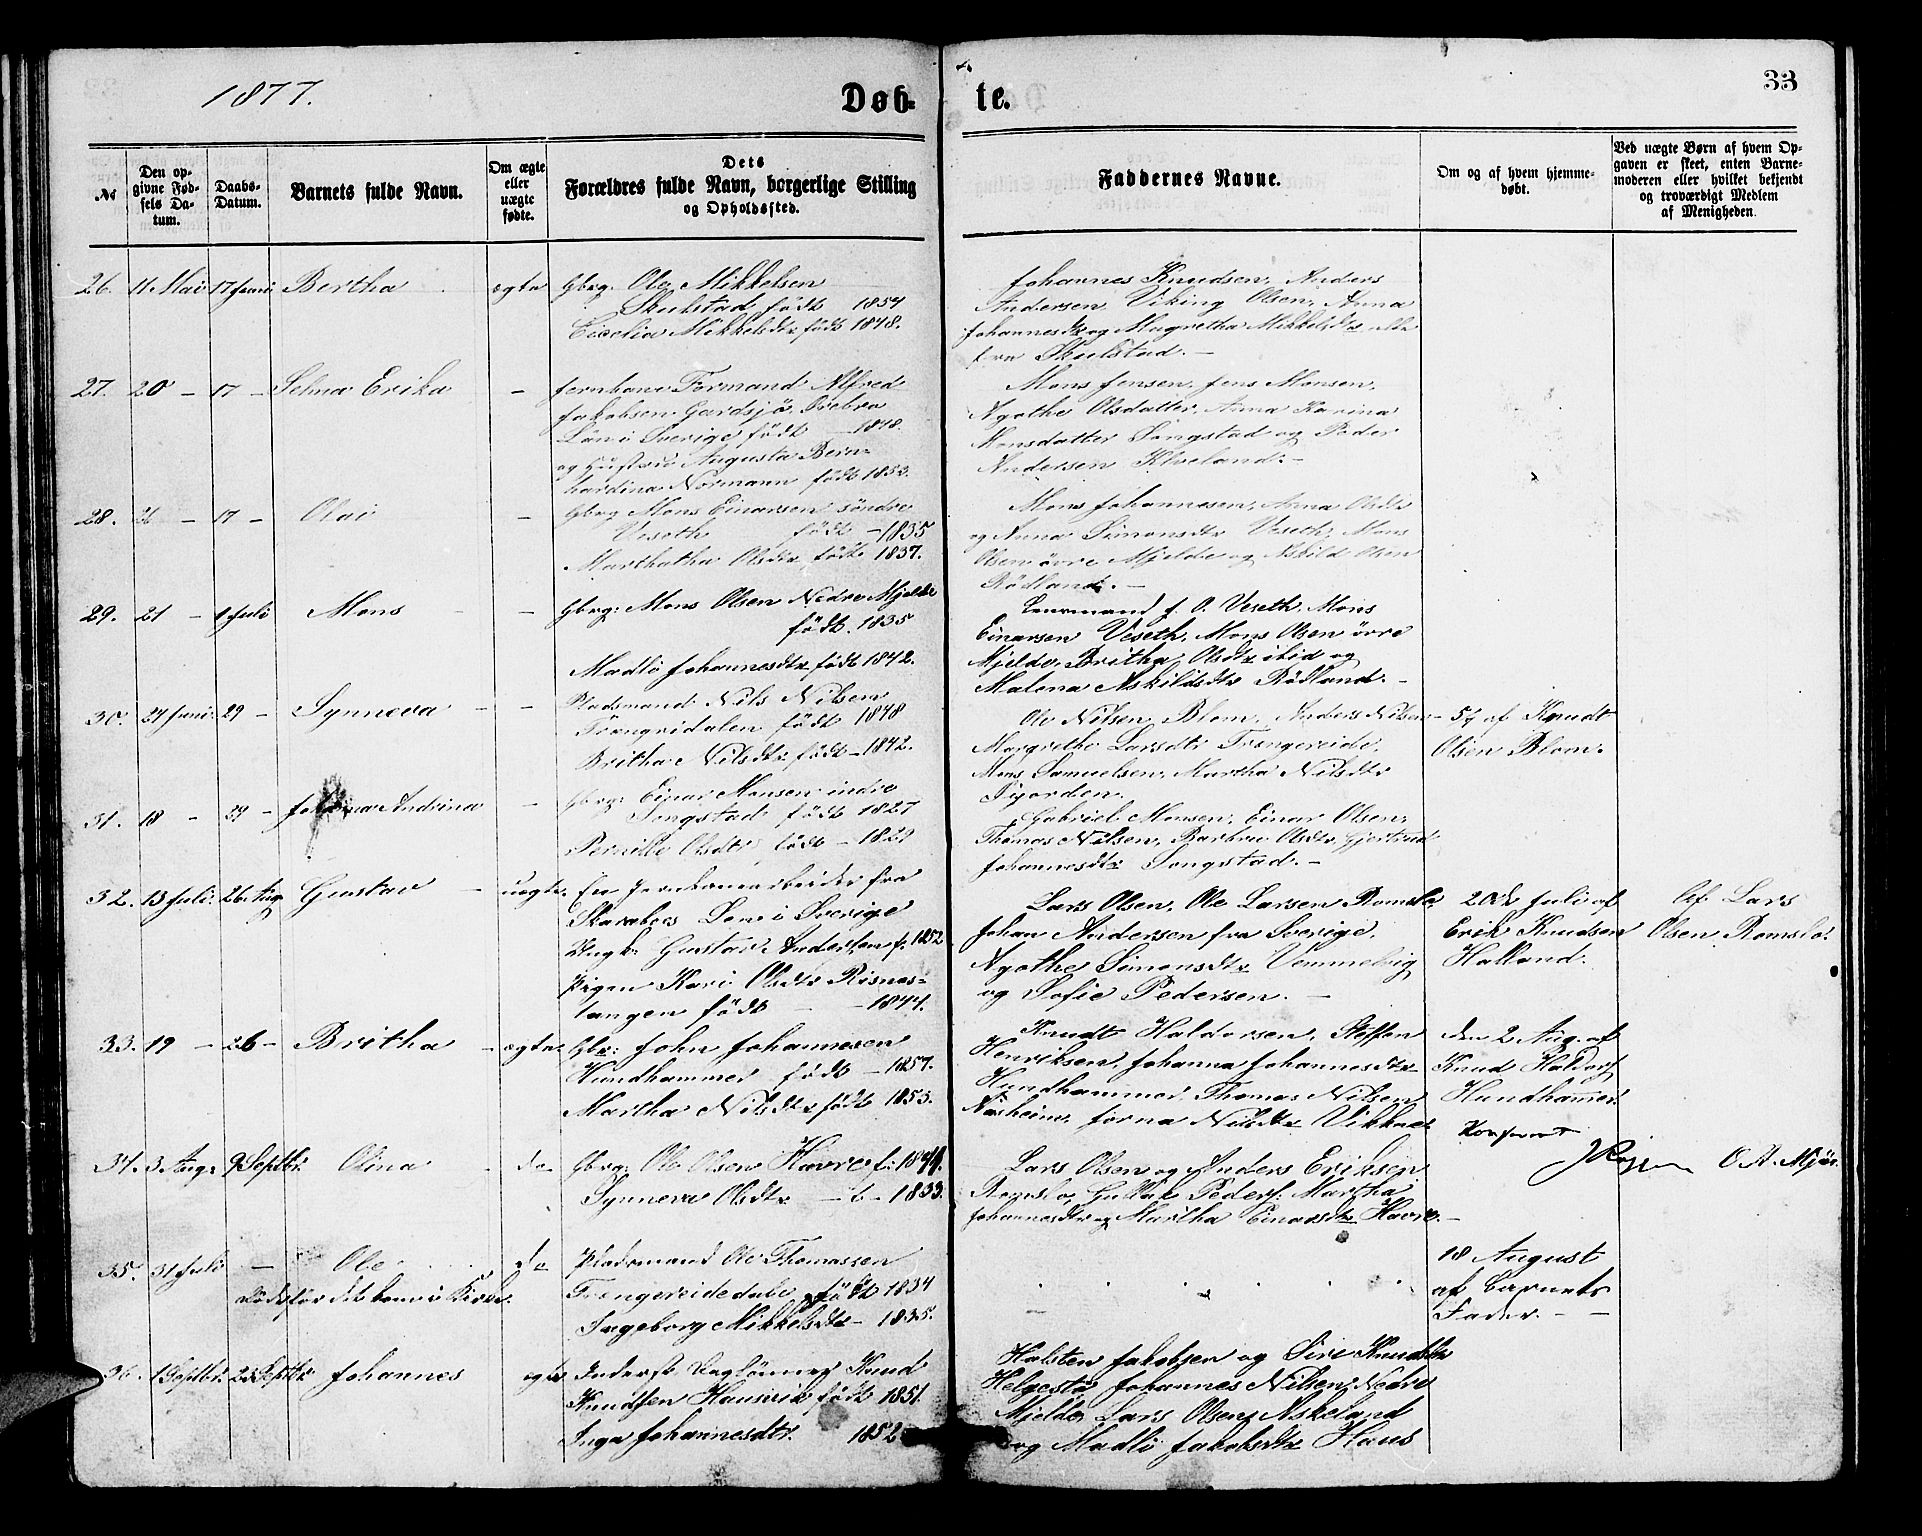 1877.
Døb-
te.
33
№
Den op-
givne Fød-
sels Da-
tum.
Daabs-
Datum.
Barnets fulde Navn.
Om ægte
eller
uægte
fødte.
Dets
Forældres fulde Navn, borgerlige Stilling
og Opholdssted.
Faddernes Navne.
Om og af hvem hjemme-
døbt.
Ved uægte Børn af hvem Op-
gaven er skeet, enten Barne-
moderen eller hvilket bekjendt
og troværdigt Medlem
af Menigheden.
26. 11 Mai 17 Juni Bertha ægte Gbrg. Ole Mikkelsen
Skulstad født 1854
Cicelia Mikkelsdtr født 1848.
Johannes Knudsen, Anders
Andersen, Viking Olsen, Anna
Johannesdtr og Magretha Mikkelsdtr alle
fra Skulstad. —
27. 20 — 17 — Selma Erika — Jernbane Formand Alfred
Jakobsen Gardsjö, Örebro
Län i Sverige født — 1848.
og Hustru Augusta Bern-
hardina Normann født 1833.
Mons Jensen, Jens Monsen,
Agathe Olsdatter, Anna Karina
Monsdatter Songstad og Peder
Andersen Kleveland. —
28. 26 — 17 — Olai — Gbrg Mons Einarsen söndre
Veseth født — 1835
Marthatha Olsdtr født 1837.
Mons Johannesen, Anna Olsdtr
og Anna Simonsdtr Veseth, Mons
Olsen övre Mjelde og Askild Olsen
Rödland. —
29. 21 — 1 Juli Mons — — Gbrg: Mons Olsen Nedre Mjelde
født. 1835
Madlö Johannesdtr født 1842.
Lensmand J. O. Veseth, Mons
Einarsen Veseth, Mons Olsen övre
Mjelde, Britha Olsdtr ibid og
Malena Askildsdtr Rödland. —
30. 27 Juni 29 — Synneva — — Pladsmand Nils Nilsen
født 1848
Britha Nilsdtr født — 1842.
Ole Nilsen Blom, Anders Nilsen
Margrethe Larsdtr Trengereide,
Mons Samuelsen, Martha Nilsdtr
5/7 af Knudt
Olsen Blom.
31. 18 — 29 — Andrina — Gbrg: Einar Monsen indre
Songstad født 1827
Pernille Olsdtr født — 1829
Gabriel Monsen, Einar Olsen,
Thomas Nilsen, Barbru Olsdtr, Gjertrud
Johannesdtr Songstad. —
32. 13 Juli 26 Aug Gustav — uægte. En Jernbanearbeider fra
Skaraborgs Len i Sverige
Ungk: Gustav Anderson f. 1852
Pigen Kari Olsdtr Risnes-
tangen født — — 1844.
Lars Olsen, Ole Larsen Romslo,
Johan Andersen fra Sverige,
Agathe Simonsdtr Vemmelvig
og Sofie Pedersen. —
20de Juli af
Erik Knudsen
Halland.
Af Lars
Olsen Romslo.
33. 19 — 26 — Britha — ægte Gbr: John Johannesen
Hundhammer født — 1857.
Martha Nilsdtr født 1853.
Knudt Haldorsen, Steffen
Henriksen, Johanna Johannesdtr
Hundhammer, Thomas Nilsen
Næsheim, Jorna Nilsdtr Vikkae
den 2 Aug. af
Knud Haldors
Hundhammer.
34. 3 Aug: 9 Septbr Olina — do Gbrg: Ole Olsen Havre f: 1844.
Synneva Olsdtr — t — 1833.
Lars Olsen og Anders Eriksen
Romslo, Gullak Peders: Martha
Johannesdtr og Martha Einarsdtr Havre. —
O A Mjös
35. 31 Juli — Ole do Pladsmand Ole Thomassen
Döde för det kom i Kirke. Trengereidedale født 1834
Ingeborg Mikkelsdtr — 1835.
18 August
af Barnets
Fader. — —
36. 1 Septbr 23 Septbr Johannes ægte Inderst Daglönner Knud
Knudsen Hausvik født 1851.
Inga Johannesdtr. 1852
Halsten Jakobsen og Siri Knudsdtr
Helgestø Johannes Nilsen Nedre
Mjelde, Lars Olsen Askeland
og Madlö Jakobsdtr Haus